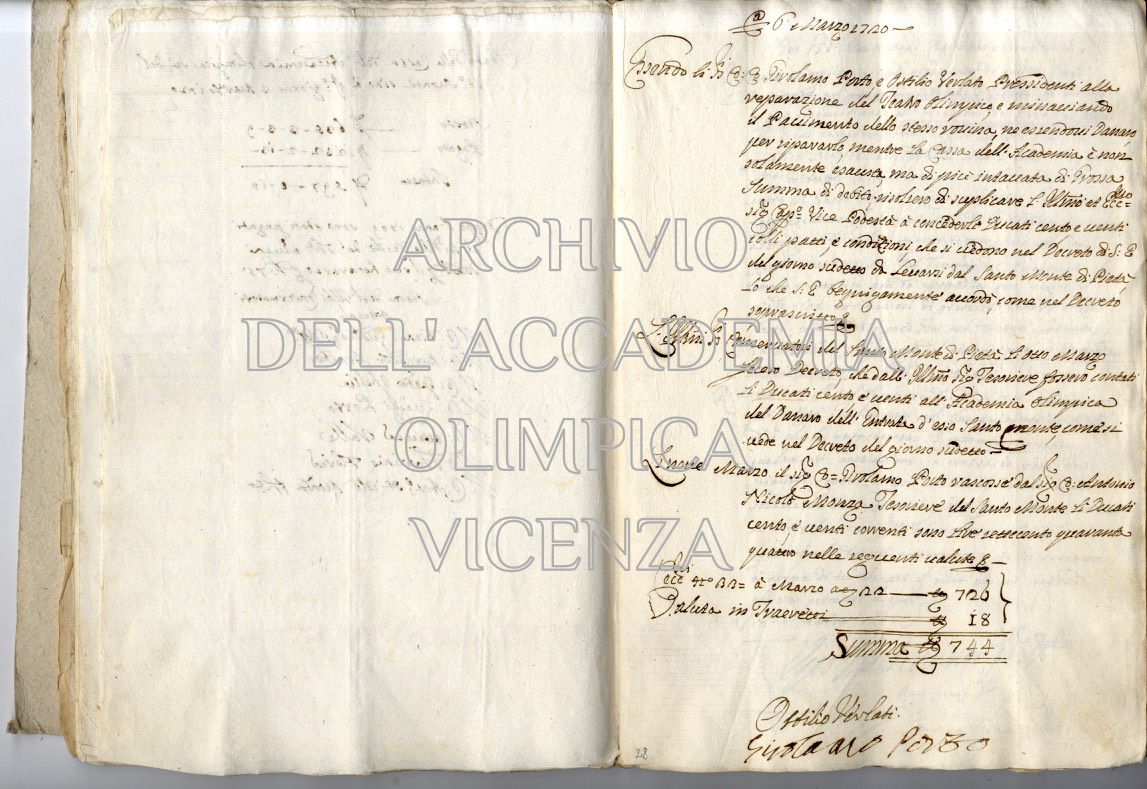 A 6 Marzo 1720
Essendo li SS.i Co: Co: Girolamo Porto e Ottilio Verlato Pressidenti alla
reparazione del Teatro Olimpico, e minacciando
il Pavimento dello stesso rovina, ne essendovi Danaro
per ripararlo, mentre la Cassa dell'Academia è non
solamente esausta, ma di più intaccata di Grossa
Summa di debiti, risolsero di supplicare l'Ill.mo et Ecc.mo
Sig.r Cap.o Vice Podestà à concederle Ducati cento e venti
colli patti, e condizioni, che si vedono nel Decreto di S: E
del giorno sudetto da Levarsi dal Santo Monte di Pietà
Lo che S: E benignamente accordò, come nel Decreto
soprascritto
Gl'Ill.mi SS.i Conservatori del Santo Monte di Pietà li otto Marzo
fecero Decreto, che dall'Ill.mo Sig.r Tesoriere fossero contati
li Ducati cento e venti all'Academia Olimpica
del Danaro dell'Entrata d'esso Santo Monte, come si
vede nel Decreto del giorno sudetto
Li nove Marzo il Sig.r Co: Girolamo Porto riscosse dal Sig.r Co: Antonio
Nicolò Monza Tesoriere del Santo Monte li Ducati
cento, e venti correnti sono Lire settecento quaranta
quattro nelle seguenti valute
à Marzo a 22 726
Valuta in Traeretti 18
Summa 744
Ottilio Verlati
Girolamo Porto
28
ARCHIVIO
DELL'ACCADEMIA
OLIMPICA
VICENZA